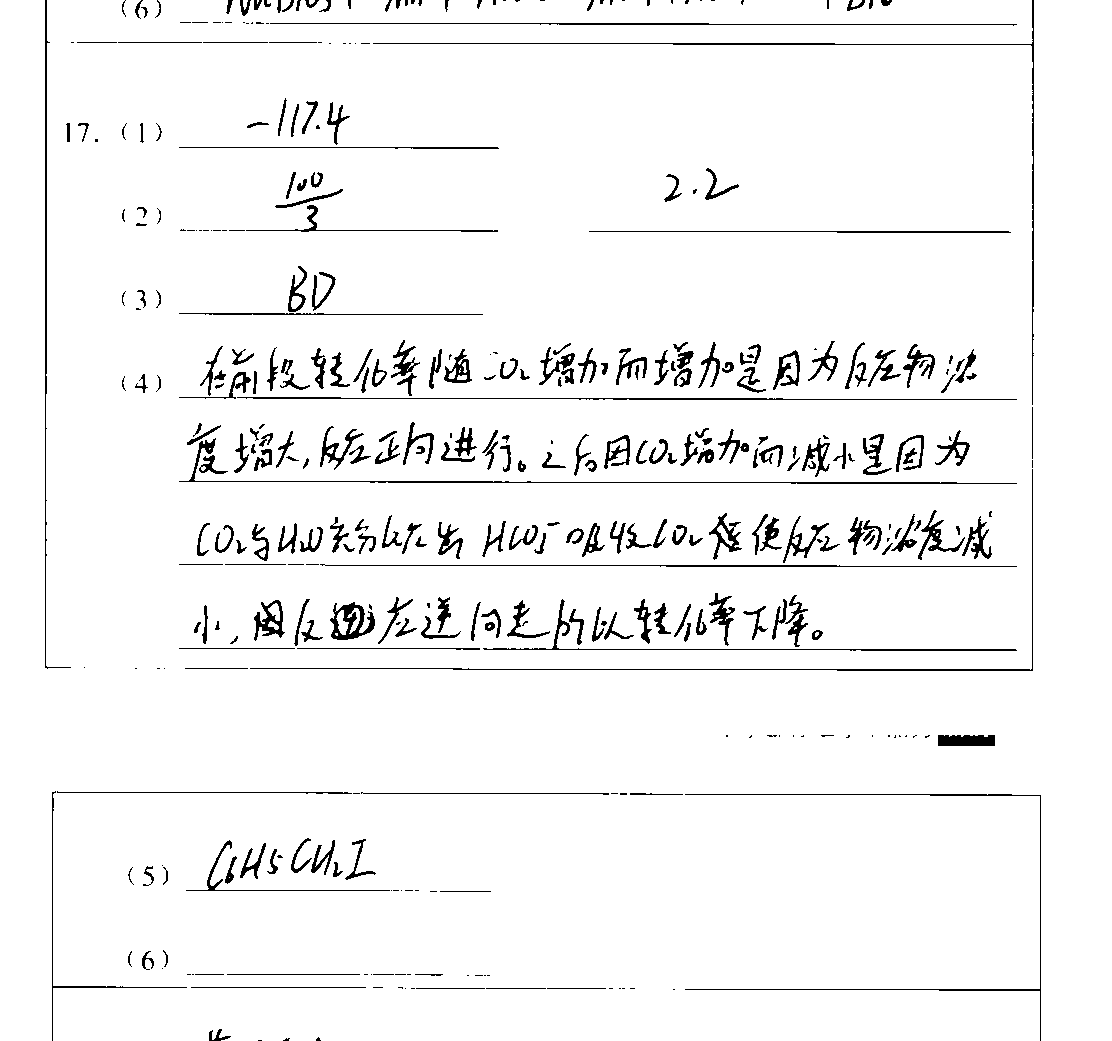 (6)
17. (1) -117.4
(2) 100/3 2.2
(3) BD
(4) 在前段转化率随CO₂增加而增加是因为反应物浓
度增大,反应正向进行。之后因CO₂增加而减小是因为
CO₂与H₂O充分反应出HCO₃⁻吸收CO₂ 促使反应物浓度减
小,因反应逆向走所以转化率下降。
(5) C₆H₅CH₂I
(6)